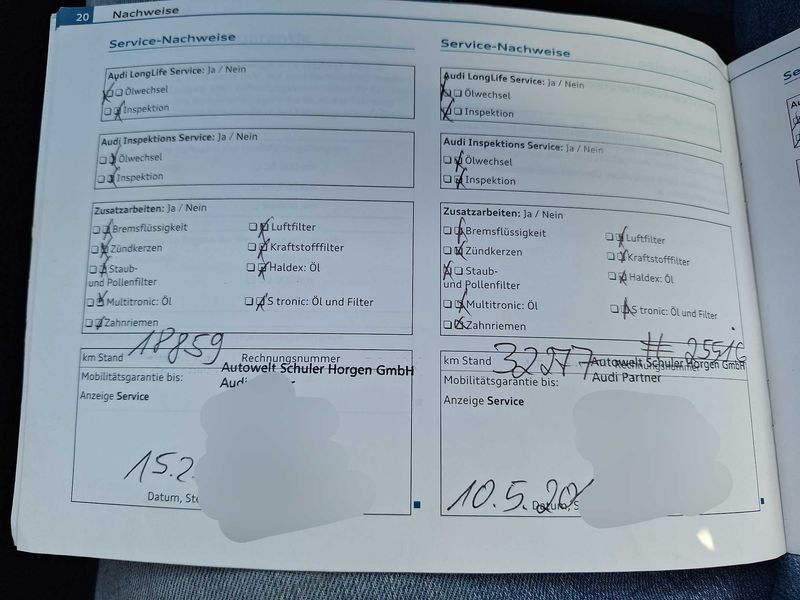 20 Nachweise
Service-Nachweise
Audi LongLife Service: Ja / Nein
Ölwechsel
Inspektion
Audi Inspektions Service: Ja / Nein
Ölwechsel
Inspektion
Zusatzarbeiten: Ja / Nein
Bremsflüssigkeit Luftfilter
Zündkerzen Kraftstofffilter
Staub- Haldex: Öl
und Pollenfilter
Multitronic: Öl S tronic: Öl und Filter
Zahnriemen
km Stand 18859 Rechnungsnummer
Autowelt Schuler Horgen GmbH
Mobilitätsgarantie bis: Audi
Anzeige Service
15.2
Datum, Ste
Service-Nachweise
Audi LongLife Service: Ja / Nein
Ölwechsel
Inspektion
Audi Inspektions Service: Ja / Nein
Ölwechsel
Inspektion
Zusatzarbeiten: Ja / Nein
Bremsflüssigkeit Luftfilter
Zündkerzen Kraftstofffilter
Staub- Haldex: Öl
und Pollenfilter
Multitronic: Öl S tronic: Öl und Filter
Zahnriemen
# 25516
km Stand 32277 Autowelt Schuler Horgen GmbH
Rechnungsnummer
Mobilitätsgarantie bis: Audi Partner
Anzeige Service
10.5.20
Datum, S
Se